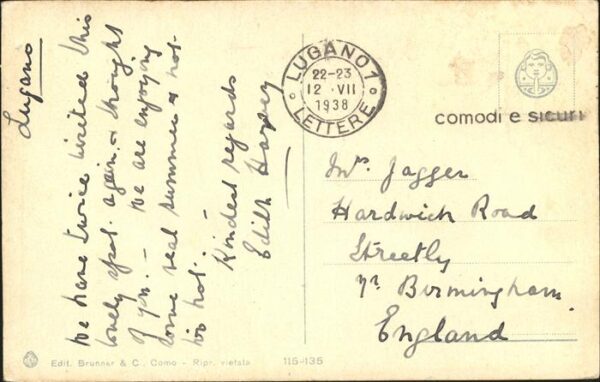 Lugano
We have twice visited this
lovely spot again & thought
of you. — We are enjoying
some real summer & not
too hot. —
Kindest regards
Edith
LUGANO 1
22-23
12 · VII
1938
LETTERE
comodi e sicuri
Mrs. Jagger
Hardwick Road
Streetly
nr. Birmingham
England
Edit. Brunner & C., Como - Ripr. vietata
115-135